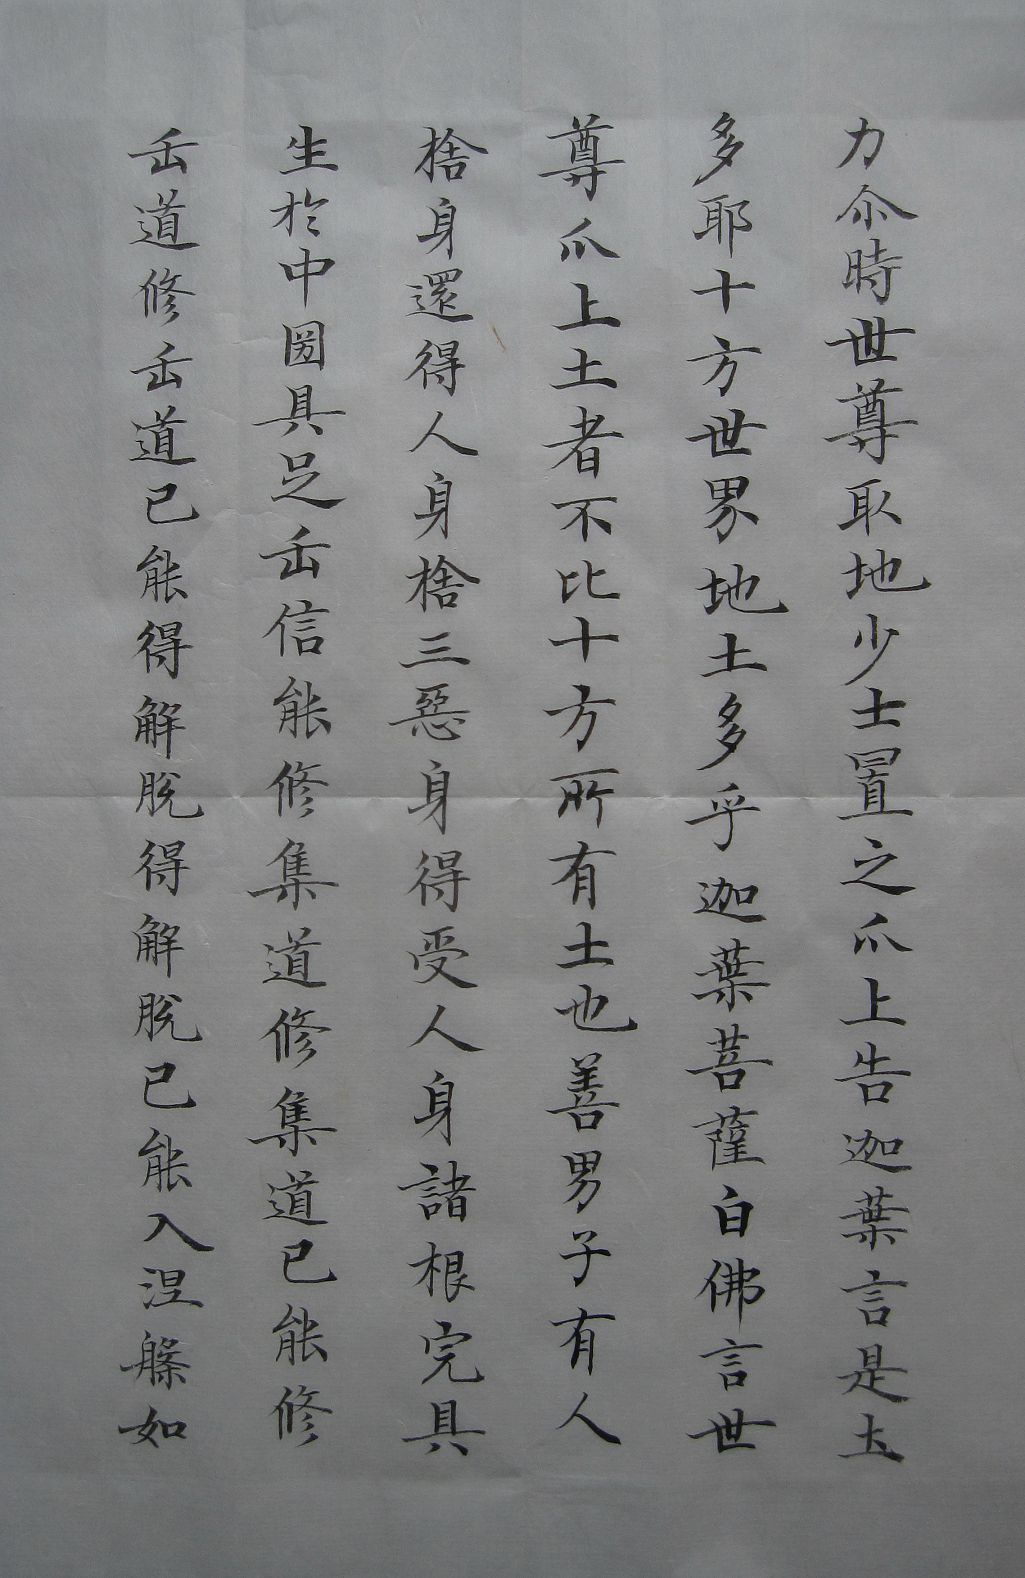 力尒時世尊取地少土置之爪上告迦葉言是土
多耶十方世界地土多乎迦葉菩薩白佛言世
尊爪上土者不比十方所有土也善男子有人
捨身還得人身捨三惡身得受人身諸根完具
生於中国具足缶信能修集道修集道已能修
缶道修缶道已能得解脫得解脫已能入涅槃如